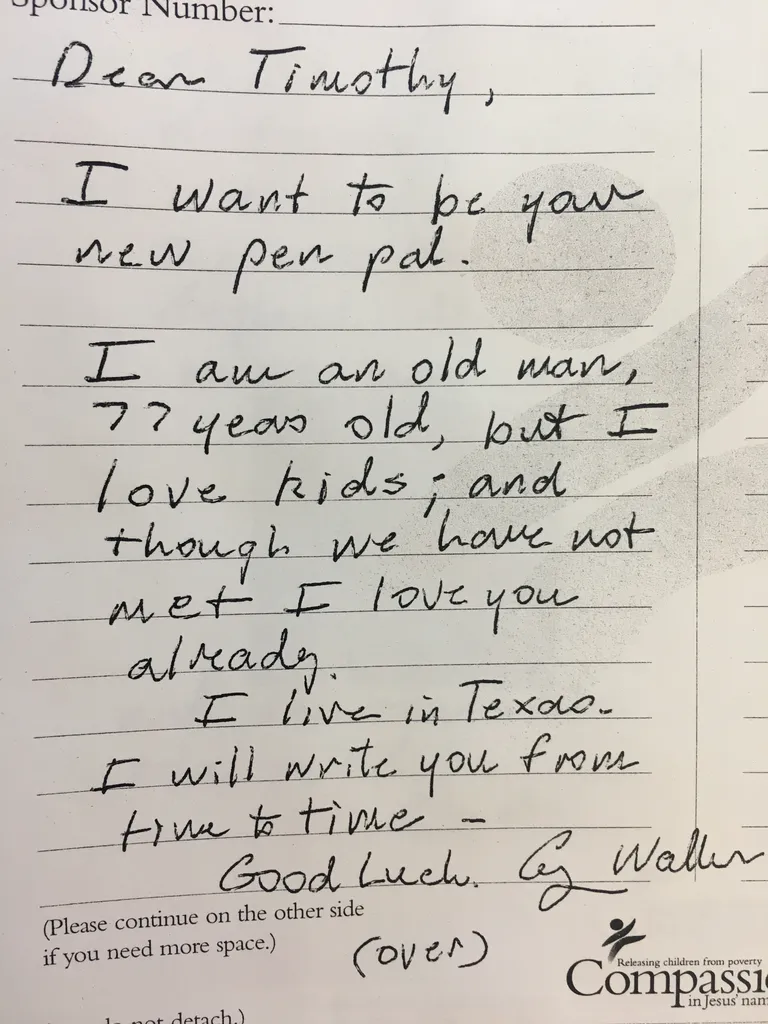 Sponsor Number:
Dear Timothy,
I want to be your
new pen pal.
I am an old man,
77 years old, but I
love kids; and
though we have not
met I love you
already.
I live in Texas.
I will write you from
time to time -
Good Luck. Cy Waller
(Please continue on the other side
if you need more space.)
(over)
Releasing children from poverty
Compassi
in Jesus' nam
do not detach.)